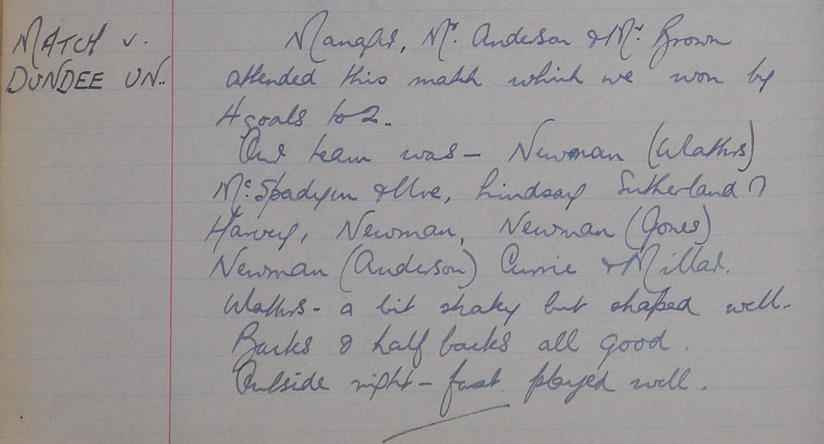 MATCH v.
DUNDEE UN.
Manager, Mr. Anderson & Mr Brown
attended this match which we won by
4 goals to 2.
Our team was - Newman (Waters)
McSpadyen & Ure, Lindsay Sutherland &
Harvey, Newman, Newman (Jones)
Newman (Anderson) Currie & Millar.
Waters - a bit shaky but shaped well.
Backs & half backs all good.
Outside right - fast played well.